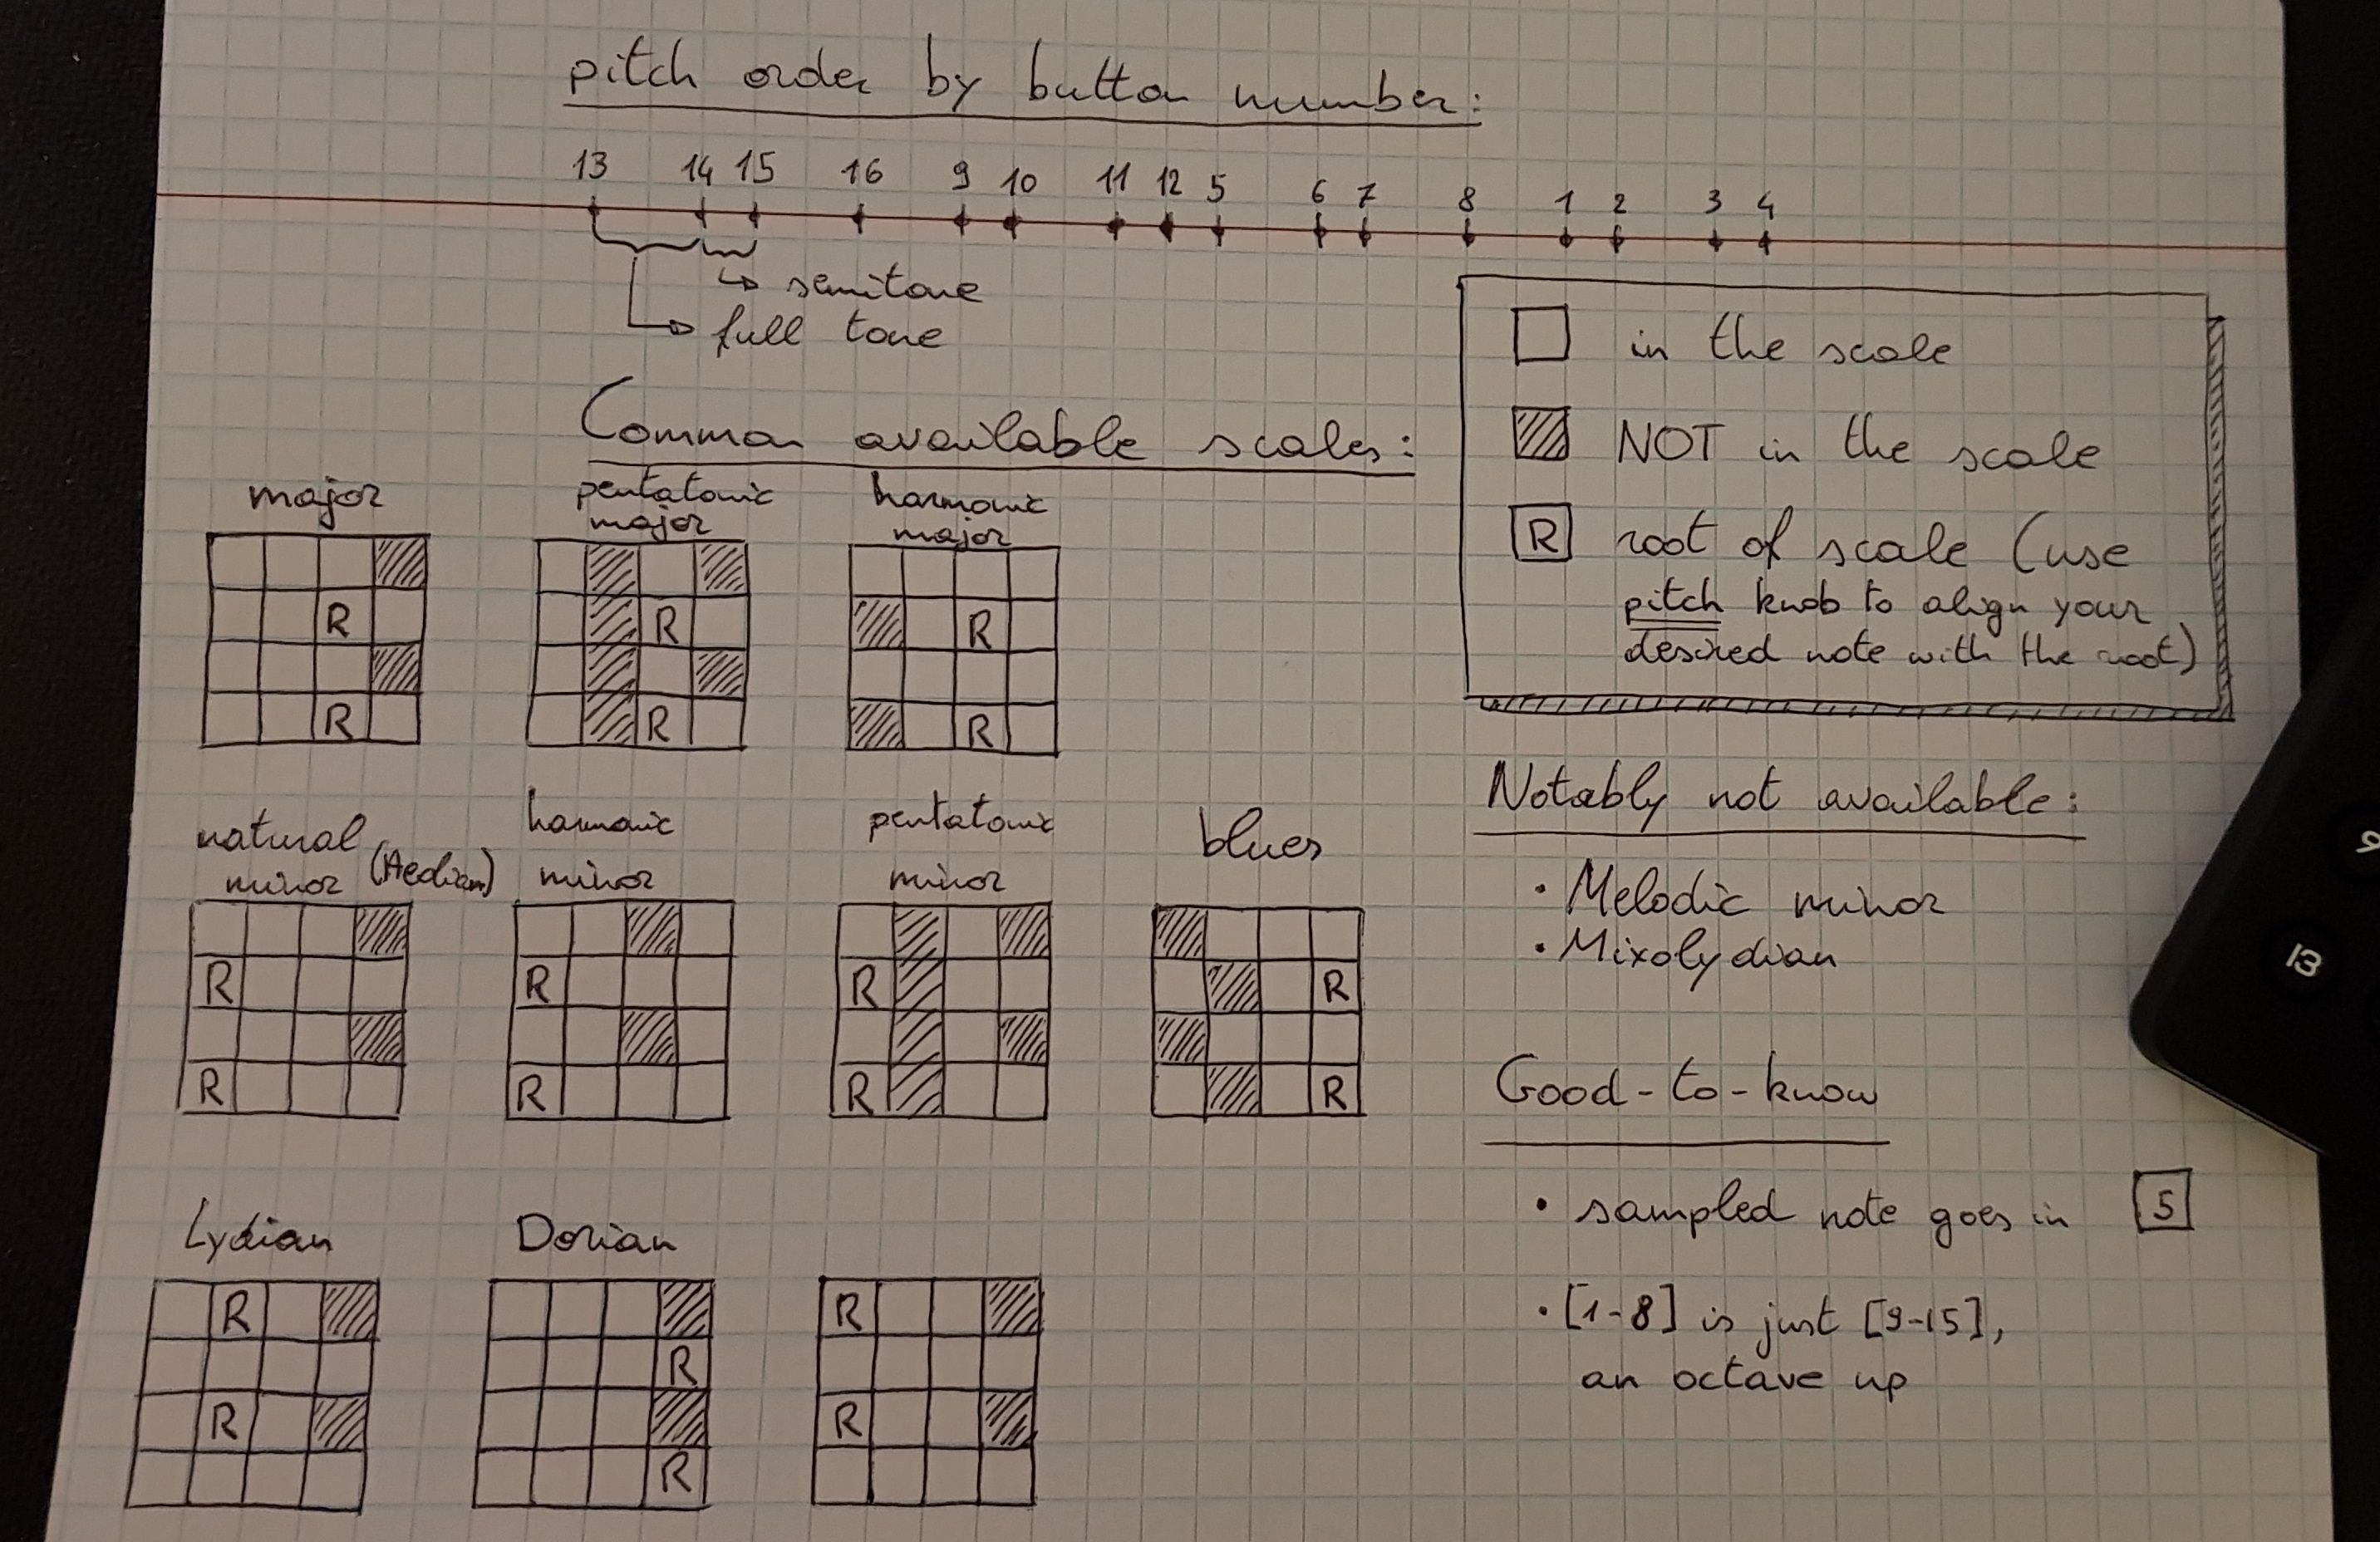 pitch order by button number:
13 14 15 16 9 10 11 12 5 6 7 8 1 2 3 4
semitone
full tone
in the scale
NOT in the scale
R root of scale (use
pitch knob to align your
desired note with the root)
Common available scales:
major
R
R
pentatonic
major
R
R
harmonic
major
R
R
natural
minor (Aeolian)
R
R
harmonic
minor
R
R
pentatonic
minor
R
R
blues
R
R
Lydian
R
R
Dorian
R
R
R
R
Notably not available:
• Melodic minor
• Mixolydian
Good-to-know
• sampled note goes in 5
• [1-8] is just [9-15],
an octave up
9
13